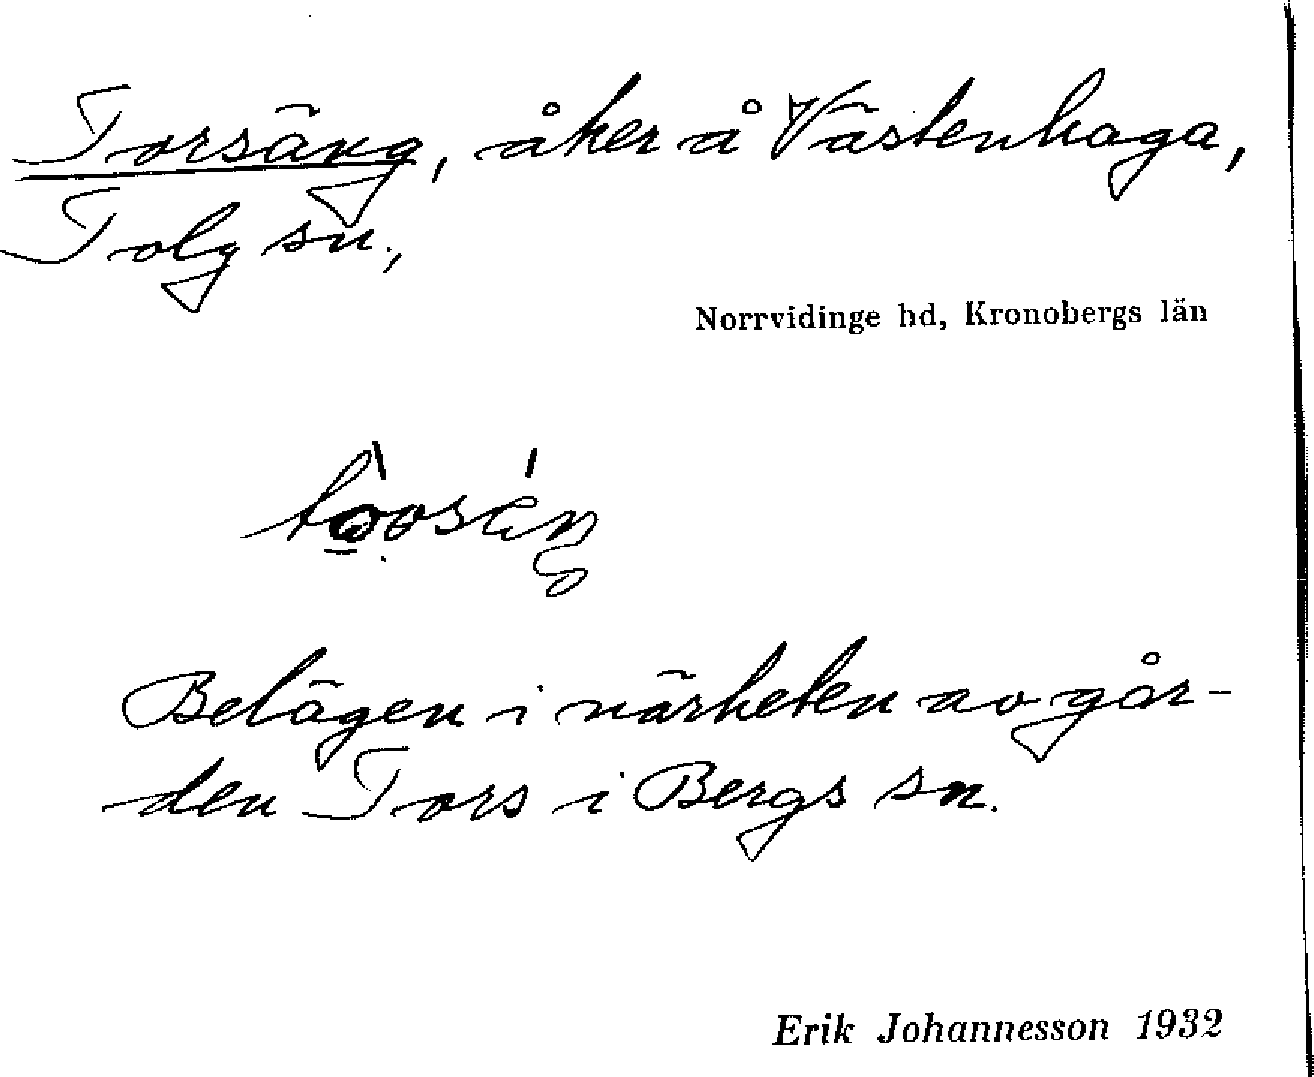 Torsäng, åker å Västenhaga,
Tolg sn.,
Norrvidinge hd, Kronobergs län
Belägen i närheten av går-
den Tors i Bergs sn.
Erik Johannesson 1932